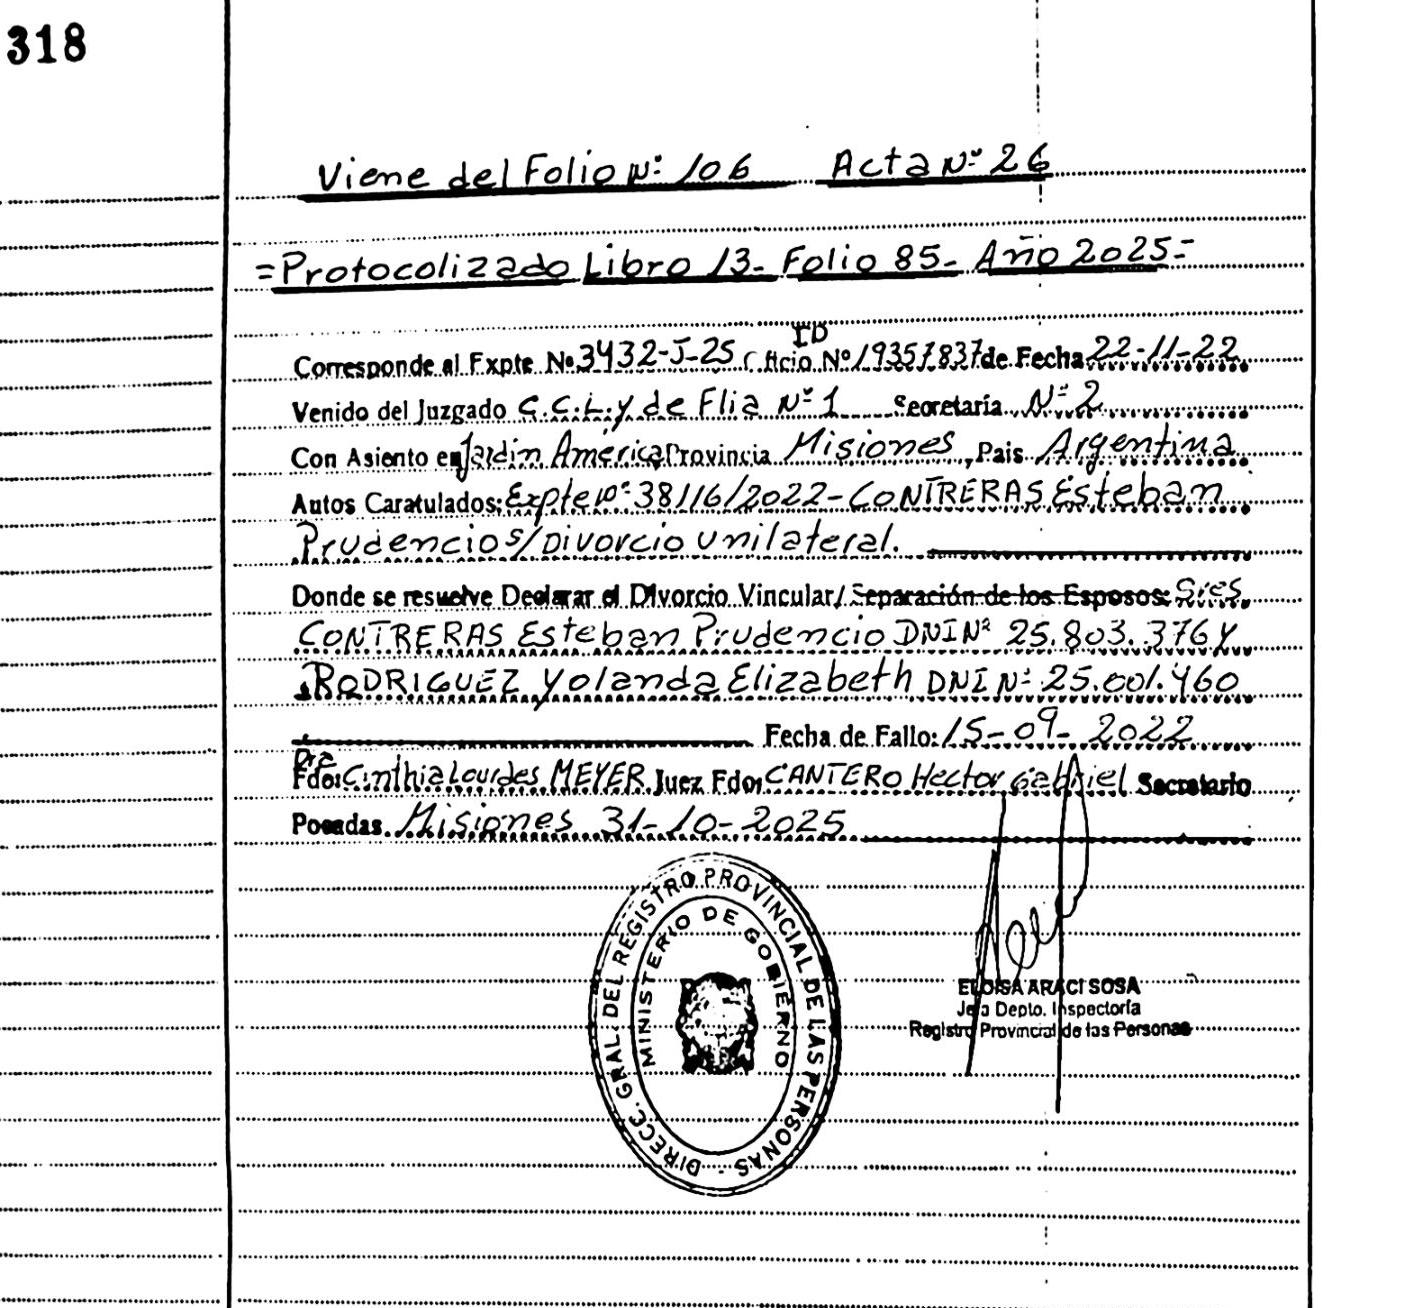 318
Viene del Folio Nº 106 Acta Nº 26
=Protocolizado Libro 13- Folio 85- Año 2025=
ID
Corresponde al Expte Nº 3432-J-25 ( ficio Nº 19357837 de Fecha 22-11-22
Venido del Juzgado C.C.L. y de Flia Nº 1 Secretaría Nº 2
Con Asiento en Jardín América Provincia Misiones, Pais Argentina
Autos Caratulados: Expte Nº 38116/2022- CONTRERAS Esteban
Prudencio s/ Divorcio Unilateral.
Donde se resuelve Declarar el Divorcio Vincular/ Separación de los Esposos: Sres
CONTRERAS Esteban Prudencio DNI Nº 25.803.376 Y
RODRIGUEZ Yolanda Elizabeth DNI Nº 25.001.460
Fecha de Fallo: 15-09-2022
Dra
Fdo: Cinthia Lourdes MEYER Juez Fdo: CANTERO Hector Gabriel Secretario
Posadas Misiones 31-10-2025
DIRECC. GRAL. DEL REGISTRO PROVINCIAL DE LAS PERSONAS -
MINISTERIO DE GOBIERNO
ELOISA ARACI SOSA
Jefa Depto. Inspectoría
Registro Provincial de las Personas